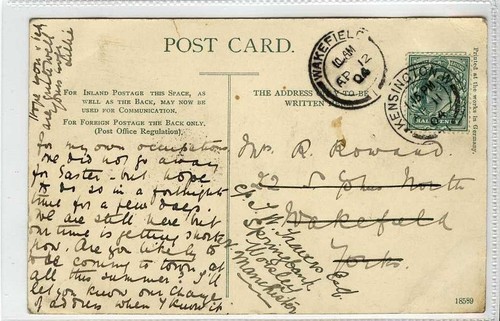 POST CARD.
FOR INLAND POSTAGE THIS SPACE, AS
WELL AS THE BACK, MAY NOW BE
USED FOR COMMUNICATION.
FOR FOREIGN POSTAGE THE BACK ONLY.
(Post Office Regulation).
THE ADDRESS TO BE
WRITTEN
WAKEFIELD
10 AM
AP 12
04
KENSINGTON
HALFPENNY
Printed at the works in Germany.
for my own occupations
We did not go away
for Easter – but hope
to do so in a fortnight's
time for a few days.
We are still here but
our time is getting shorter
now. Are you likely to
be coming to town at
all this summer. I'll
let you know our change
of address when I know it
Hope you
are quite well
Mrs. R. Rowand.
22 S Johns North
Wakefield
Yorks.
c/o
Esq
Springbank
Worsley
Nr Manchester
18589